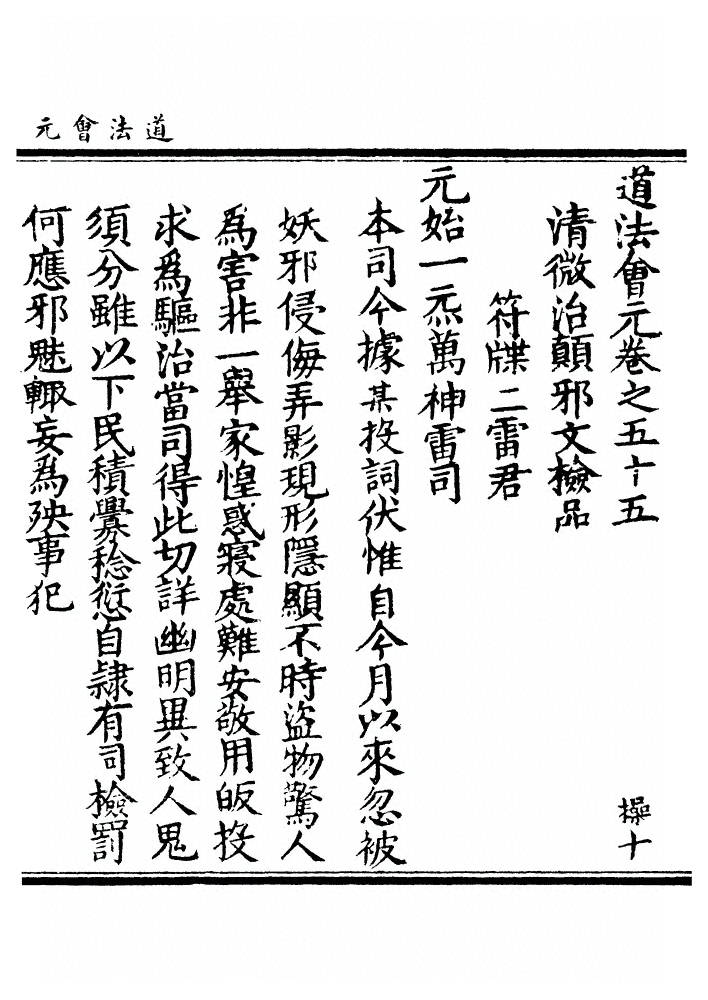 道法會元
道法會元卷之五十五　操十
清微治顛邪文檢品
符牒二雷君
元始一炁萬神雷司
本司今據某投詞伏惟自今月以來忽被
妖邪侵侮弄影現形隱顯不時盜物驚人
為害非一舉家惶惑寢處難安敬用皈投
求為驅治當司得此切詳幽明異致人鬼
須分雖以下民積釁稔愆自隷有司檢罰
何應邪魅輙妄為殃事犯